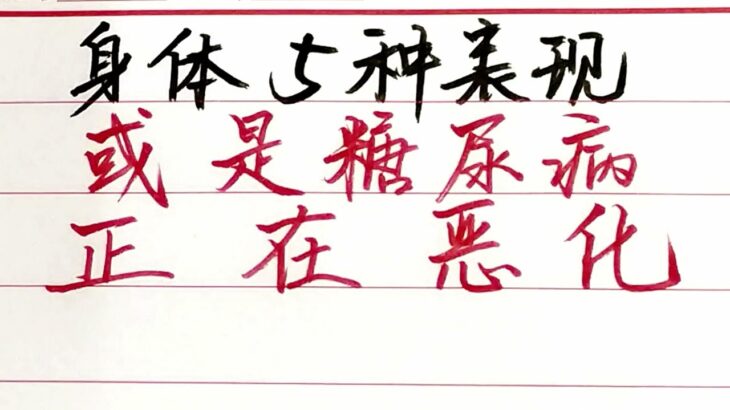 身体5种表现
或是糖尿病
正在恶化